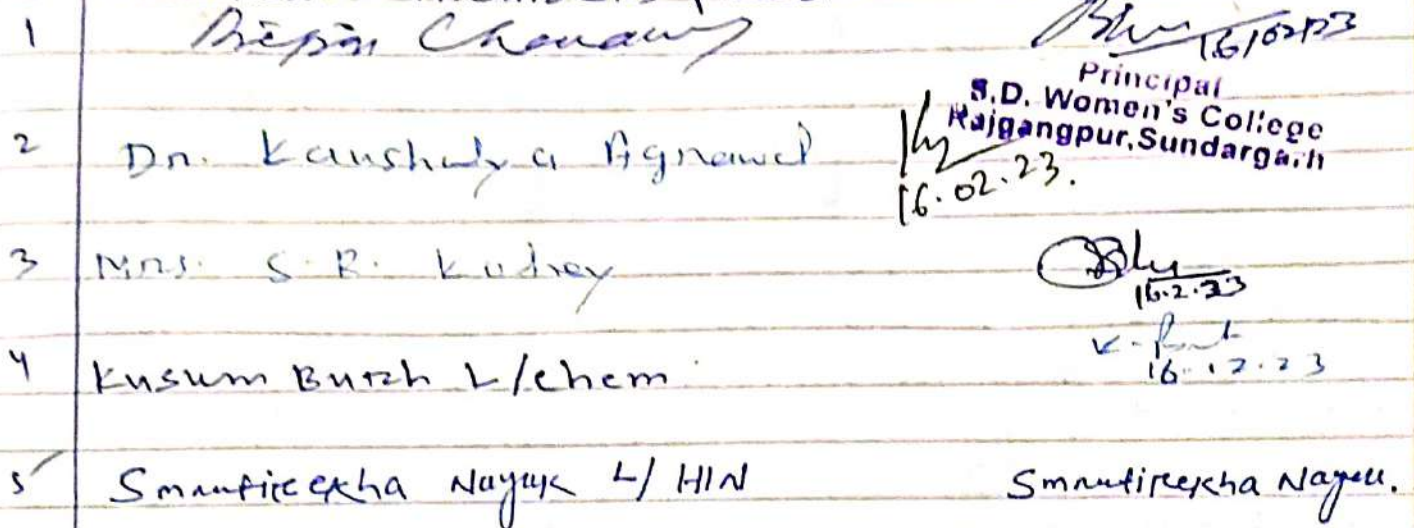 1 Bipin Choudhury 16/02/23
Principal
S.D. Women's College
Rajgangpur, Sundargarh
2 Dr. Kaushalya Agrawal
16.02.23.
3 Mrs. S. R. Kudrey
16.2.23
4 Kusum Burh L/chem
16.12.23
5 Smrutirekha Nayak L/HIN Smrutirekha Nayak.